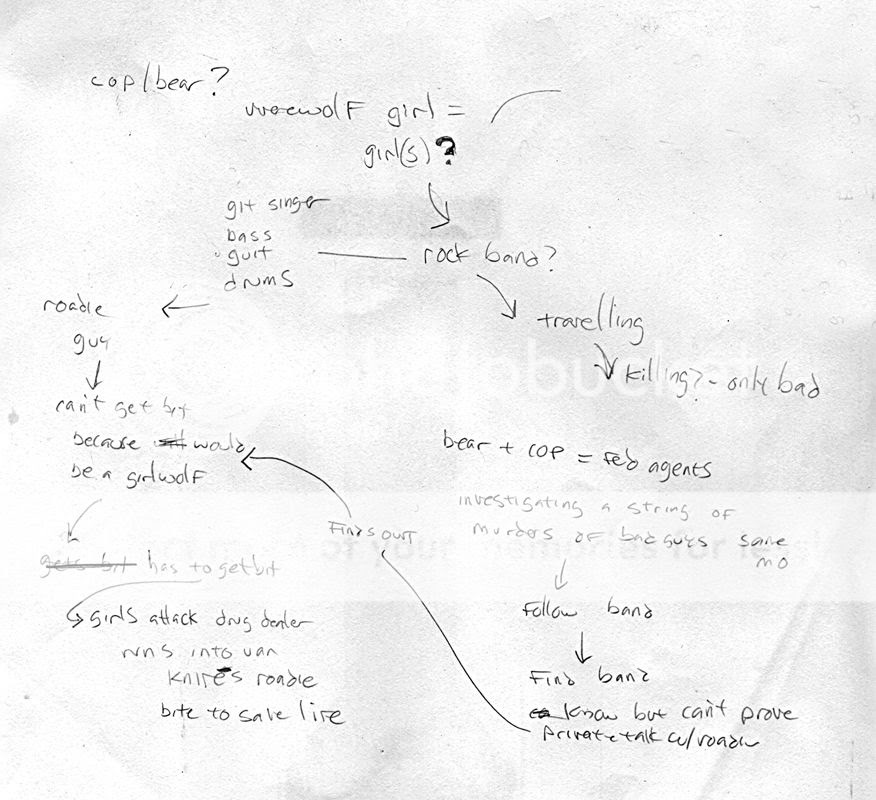 cop/bear?
werewolf girl =
girl(s)?
git singer
bass
guit
drums
rock band?
roadie
guy
travelling
killing? - only bad
can't get bit
because would
be a girlwolf
bear + cop = fed agents
investigating a string of
murders of bad guys same
mo
Finds out
has to get bit
gets bit
follow band
girls attack drug dealer
runs into van
knifes roadie
bite to save life
Find band
know but can't prove
private talk w/roadie